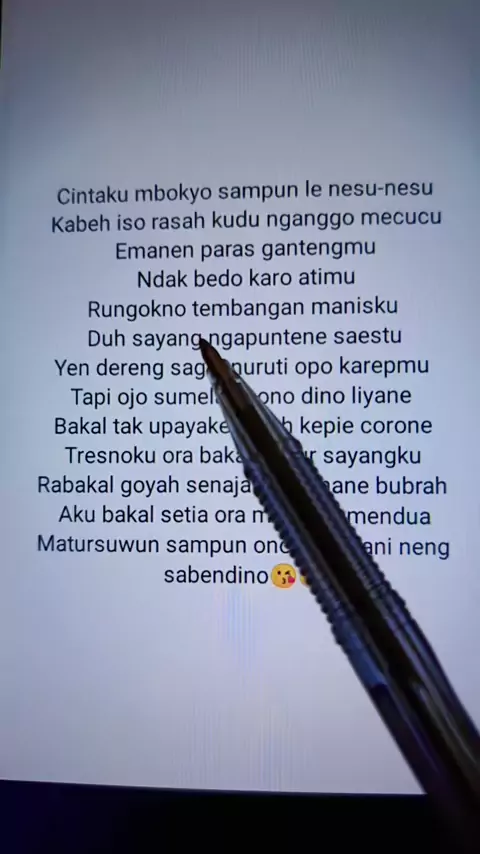 Cintaku mbokyo sampun le nesu-nesu
Kabeh iso rasah kudu nganggo mecucu
Emanen paras gantengmu
Ndak bedo karo atimu
Rungokno tembangan manisku
Duh sayang ngapuntene saestu
Yen dereng opo karepmu
Tapi ojo dino liyane
Bakal tak kepie corone
Tresnoku ora sayangku
Rabakal goyah bubrah
Aku bakal setia ora mendua
Matursuwun sampun neng
sabendino😘